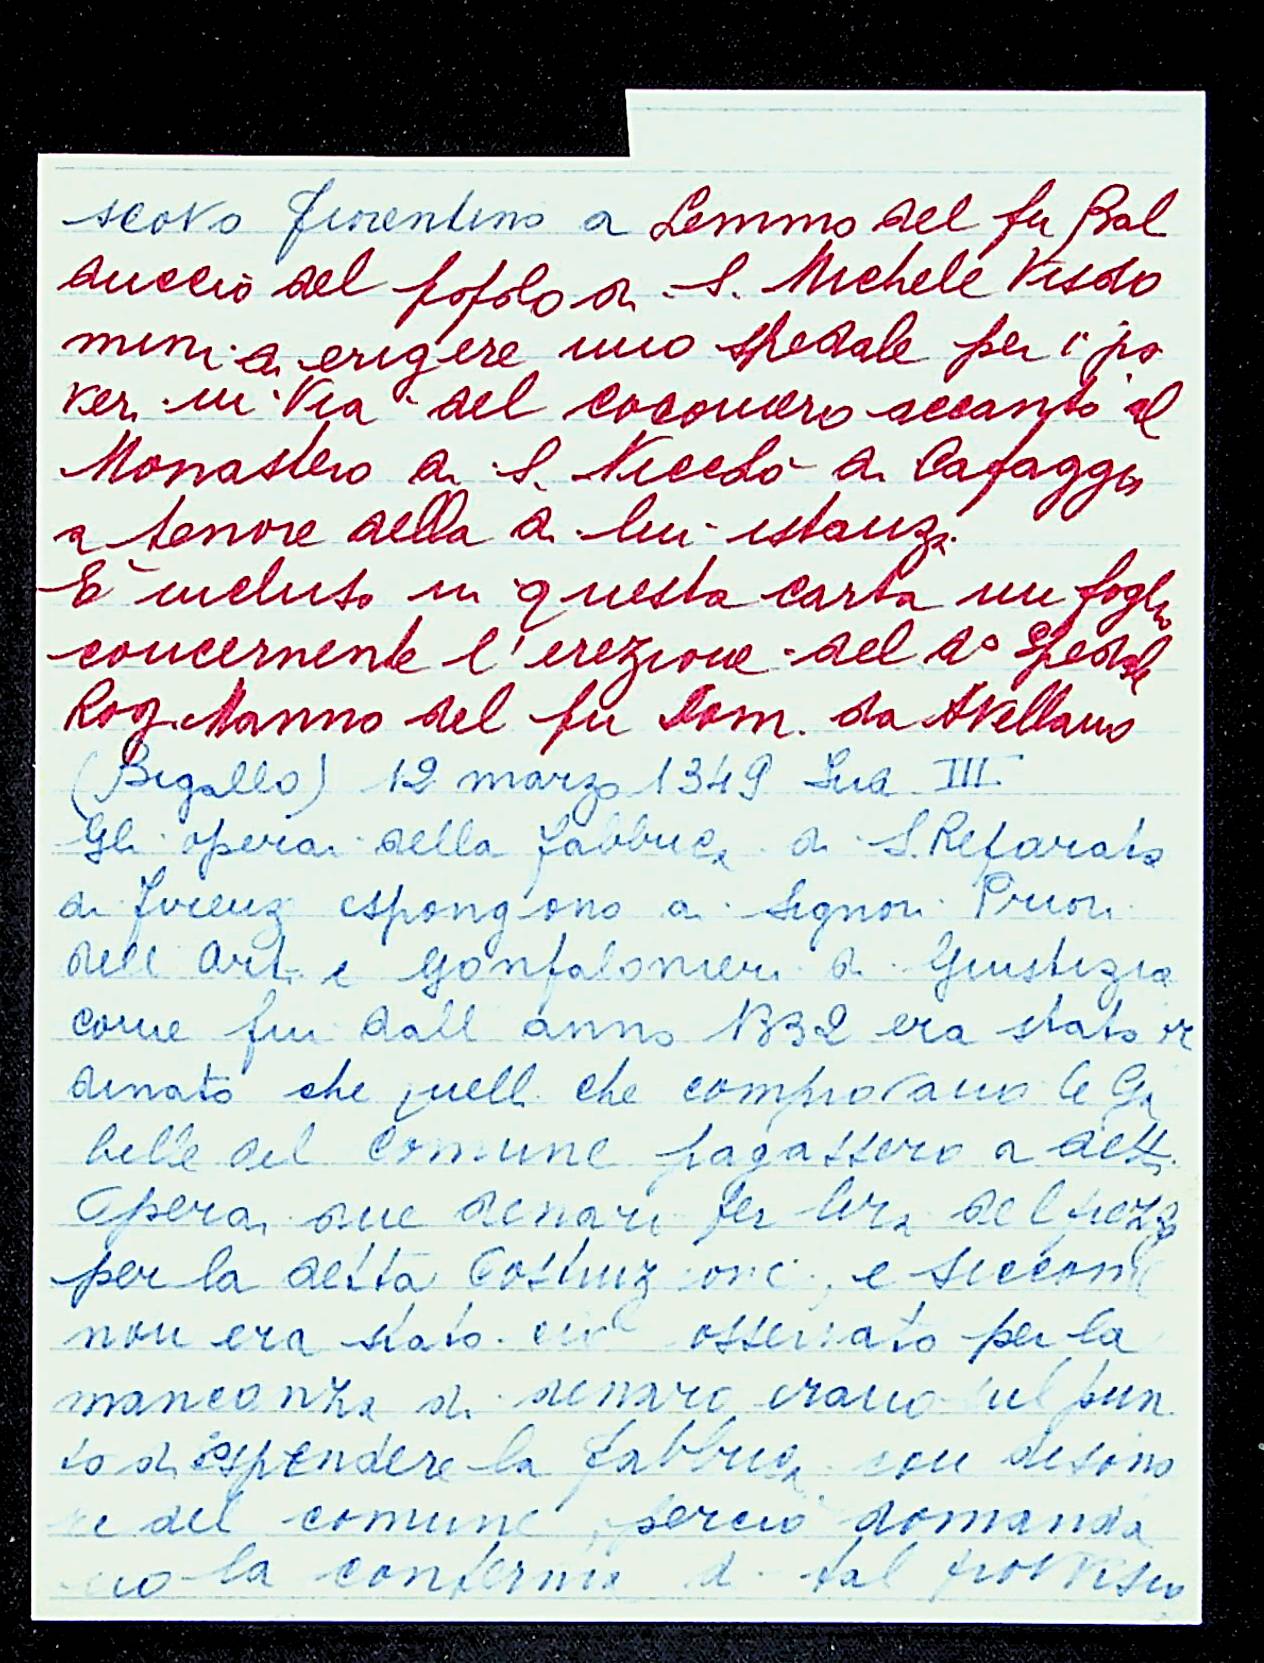 scovo fiorentino a Lemmo del fu Bal
duccio del popolo di S. Michele Visdo
mini di erigere uno spedale per i po
veri in Via del cocomero accanto al
Monastero di S. Niccolò di Cafaggio
a tenore della di lui istanza.
E' incluso in questa carta un foglio
concernente l'erezione del do Spedale
Rog. Nanno del fu Dom. da Avellano
(Bigallo) 12 marzo 1349 Ind III
Gli operai della fabbrica di S. Reparata
di Firenze espongono ai Signori Priori
dell Arti e Gonfalonieri di Giustizia
come fin dall anno 1332 era stato or
dinato che quelli che compravano le Ga
belle del Comune pagassero a detti
Operai due denari per lira del prezzo
per la detta Costruzione, e siccome
non era stato ciò osservato per la
mancanza di denaro erano sul pun
to di sospendere la fabbrica con disono
re del comune, perciò domanda
no la conferma di tal provvisio